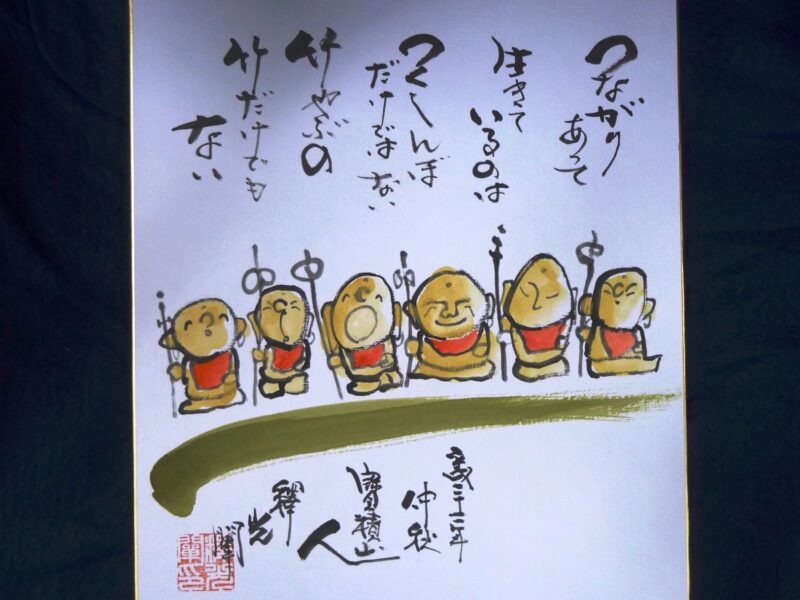 つながり
あって
生きて
いるのは
つくしんぼ
だけではない
竹やぶの
竹だけでも
ない
仲秋
寳積山
人
釋光